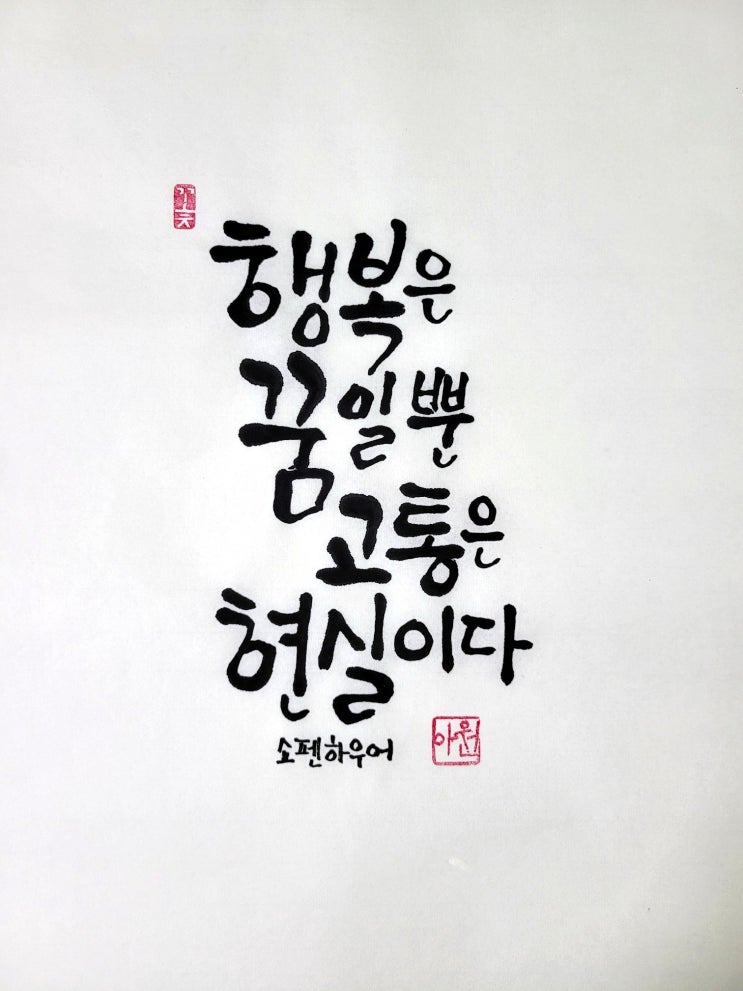 꽃
행복은
꿈일뿐
고통은
현실이다
소펜하우어
아원